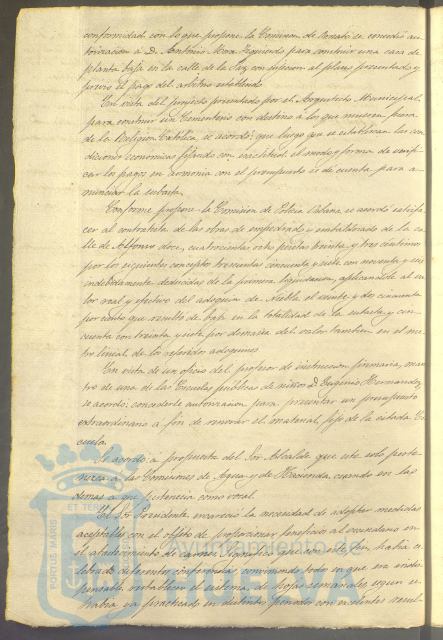 conformidad con lo que propone la Comision de Ornato se concedió au-
torizacion á D. Antonio Mora Izquierdo para construir una casa de
planta baja en la calle de la Paz con sujecion al plano presentado y
previo el pago del arbitrio establecido
En vista del proyecto presentado por el Arquitecto Municipal,
para construir un Cementerio con destino á los que mueran fuera
de la Religion Católica, se acordó: que luego que se establezcan las con-
diciones economicas fijando con exactitud el modo y forma de verifi-
car los pagos en armonia con el presupuesto se dé cuenta para a-
nunciar la subasta.
Conforme propone la Comision de Policia Urbana, se acordó satisfa-
cer al contratista de las obras de empedrado y embaldosado de la ca-
lle de Alfonso doce, cuatrocientas ocho pesetas treinta y tres centimos
por los siguientes conceptos trescientas cincuenta y siete con noventa y seis
indebidamente deducidas de la primera liquidacion, aplicandole al va-
lor real y efectivo del adoquin de Niebla el veinte y dos cincuenta
por ciento que resultó de baja en la totalidad de la subasta y cin-
cuenta con treinta y siete por demasia del valor tambien en el me-
tro lineal de los referidos adoquines
En vista de un oficio del profesor de instruccion primaria, maes-
tro de una de las Escuelas públicas de niños D. Eugenio Hernandez,
se acordó: concederle autorizacion para presentar un presupuesto
extraordinario á fin de renovar el material fijo de la citada Es-
cuela.
Se acordó á propuesta del Sor. Alcalde que este solo perte-
nezca á las Comisiones de Agua y de Hacienda, cesando en las
demas á que pertenecia como vocal.
El Sr. Presidente, encareció la necesidad de adoptar medidas
aceptables con el objeto de proporcionar beneficios al vecindario en
el abastecimiento de carnes
que con este fin, habia ce-
lebrado diferentes conferencias, conviniendo todos en que era indis-
pensable restablecer el sistema de hojas semanales segun se
habia ya practicado en distintos periodos con excelentes resul-
PORTUS MARIS
ET TERRAE
Ayuntamiento de
HUELVA